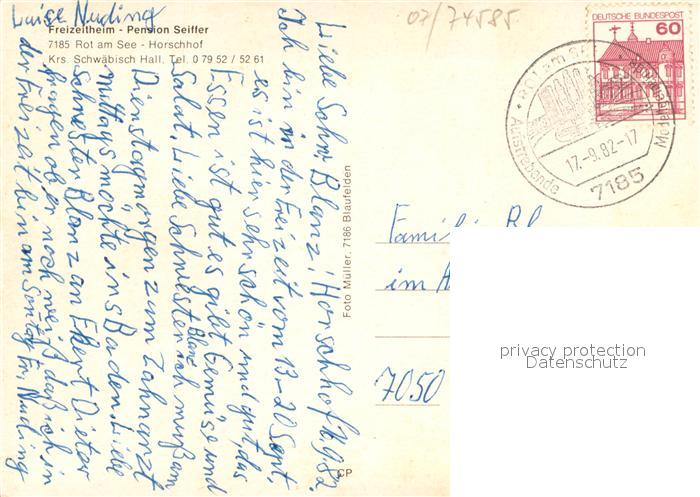 Luise Nuding
Freizeitheim - Pension Seiffer
7185 Rot am See - Horschhof
Krs. Schwäbisch Hall, Tel. 0 79 52 / 52 61
07/74585
DEUTSCHE BUNDESPOST
60
Rot am See
Aufstrebende
Mode
17.-9.82-17
7185
Liebe Schw. Blanz! Horschhof 1982
Ich bin in der Freizeit vom 13-20 Sept.
es ist hier sehr schön und gut, das
Essen ist gut es gibt Gemüse und
Salat, Liebe Schwester Blanz ich muß am
Dienstagmorgen zum Zahnarzt,
mittags möchte ins Baden. Liebe
Schwester Blanz an Ekert Dieter
fragen ob er noch weiß daß ich in
der Freizeit bin am Sontag Fr. Nuding
Foto Müller, 7186 Blaufelden
CP
Familie Bl
im
7050
privacy protection
Datenschutz